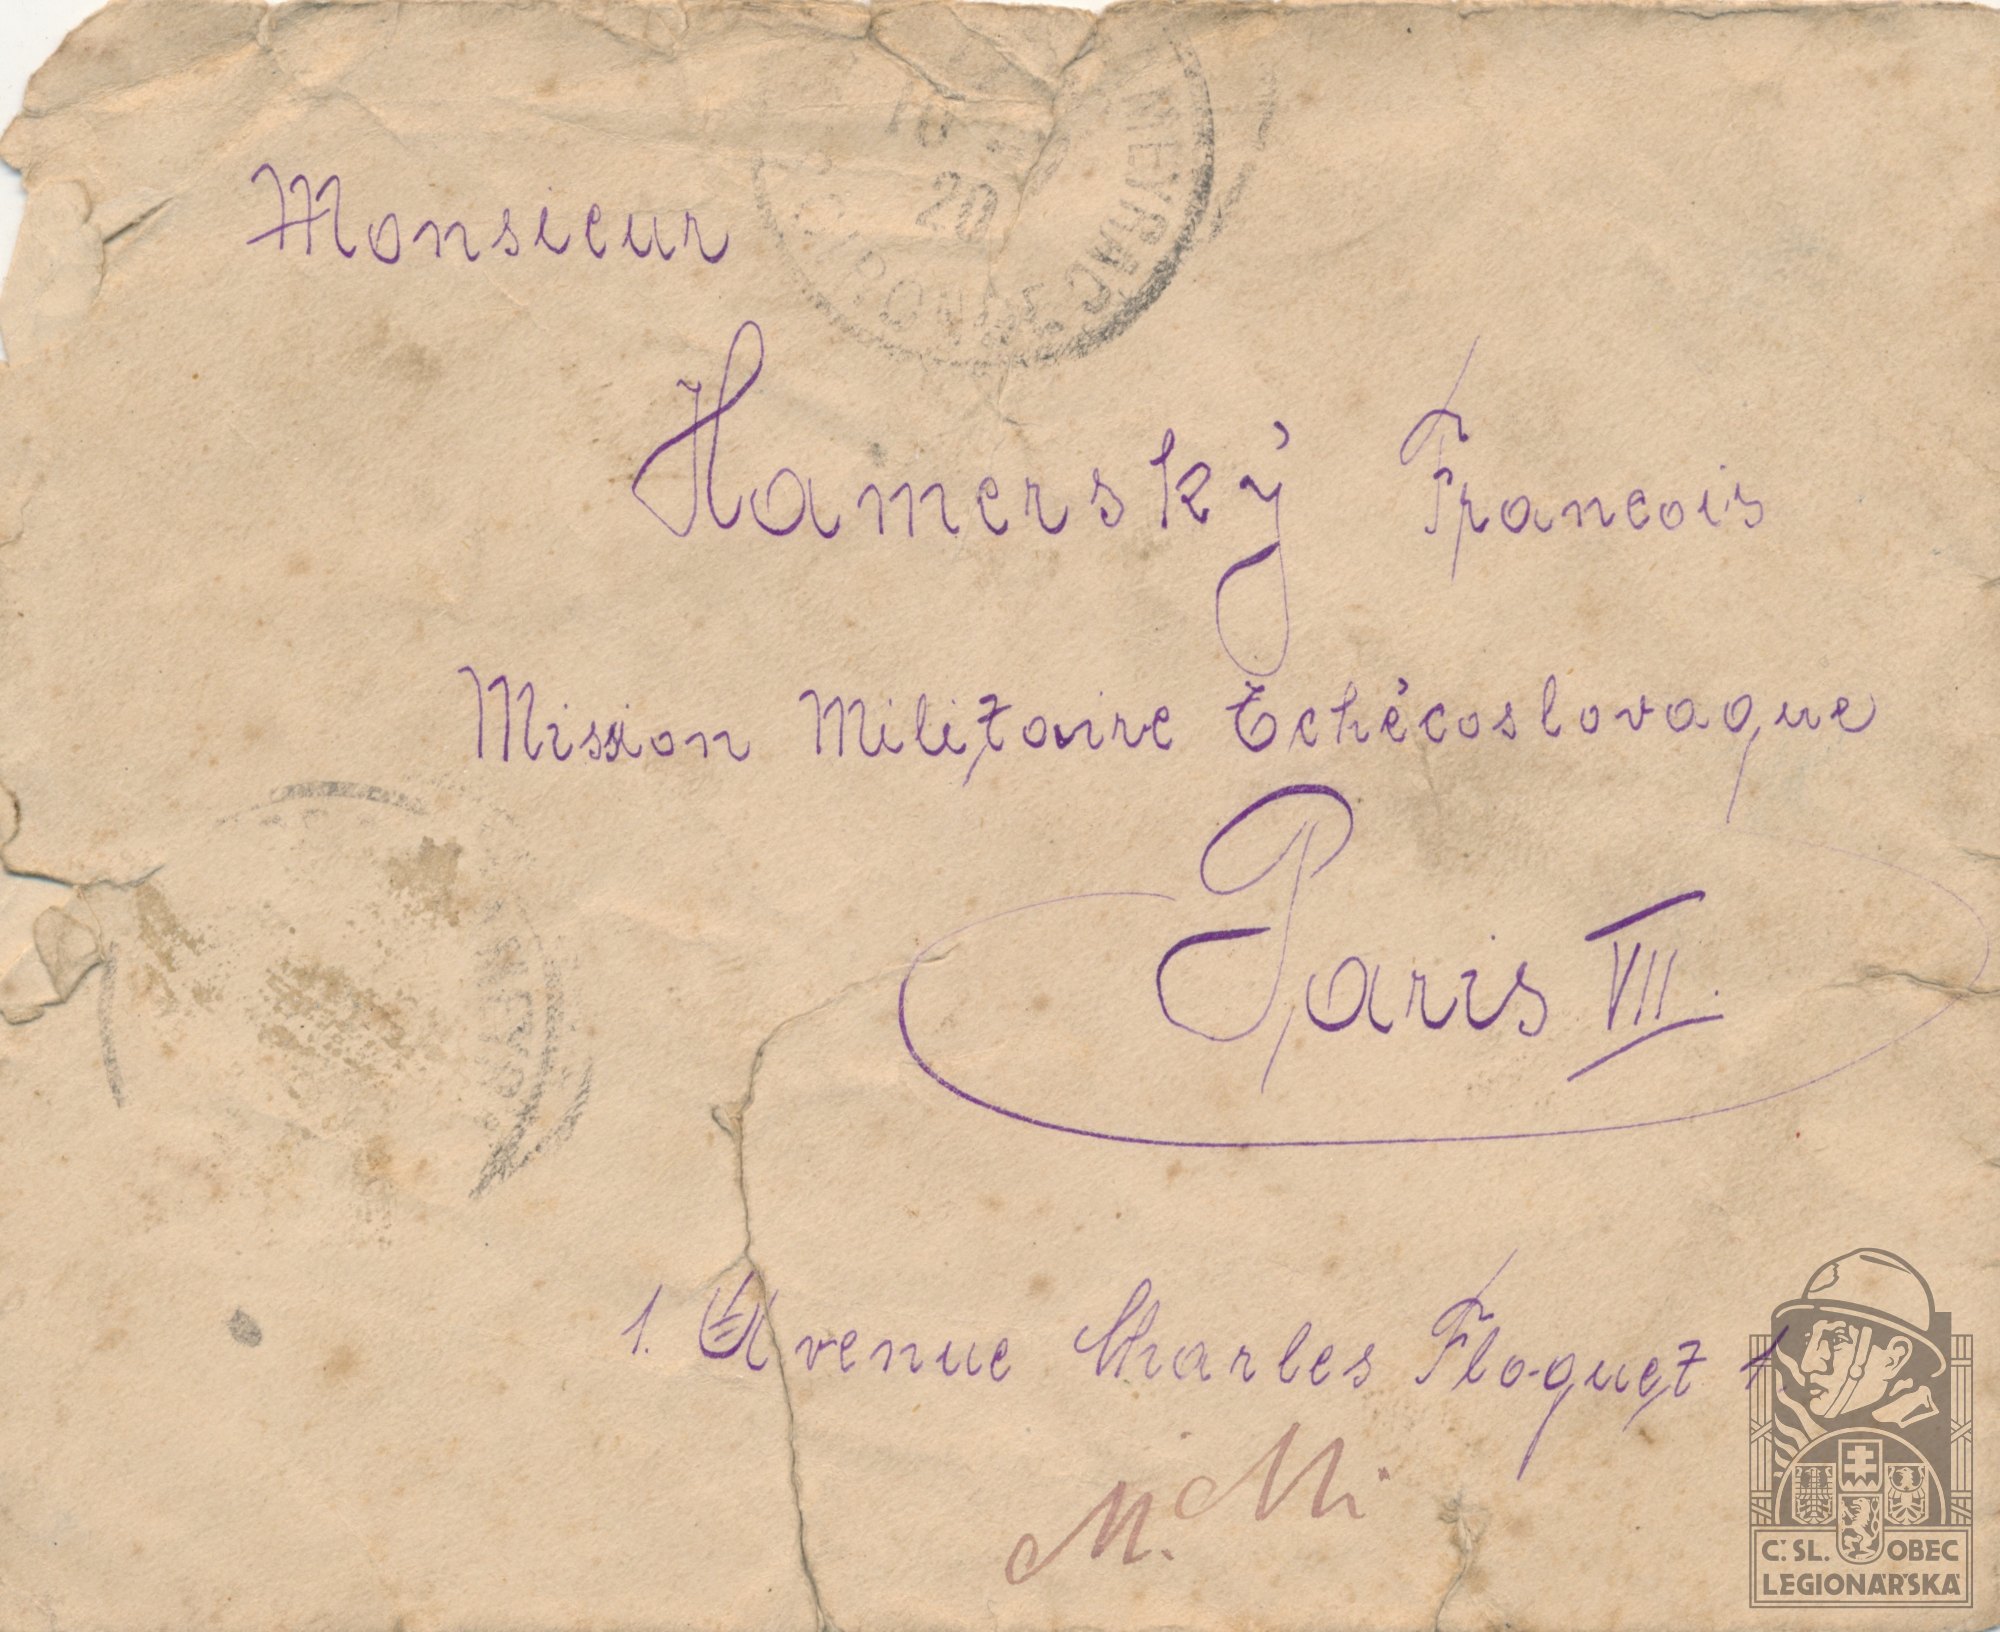 MEYRAC
GIRONDE
20
Monsieur
Hamerský Francois
Mission Militaire Tchécoslovaque
Paris VII.
1. Avenue Charles Floquet 1.
M. M.
Č. SL. OBEC
LEGIONÁŘSKÁ